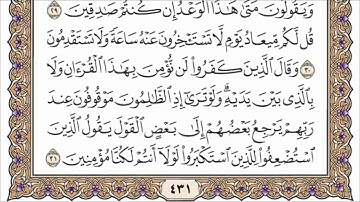 وَيَقُولُونَ مَتَىٰ هَٰذَا ٱلْوَعْدُ إِن كُنتُمْ صَٰدِقِينَ ٢٩
قُل لَّكُم مِّيعَادُ يَوْمٍ لَّا تَسْتَـْٔخِرُونَ عَنْهُ سَاعَةً وَلَا تَسْتَقْدِمُونَ
٣٠ وَقَالَ ٱلَّذِينَ كَفَرُوا۟ لَن نُّؤْمِنَ بِهَٰذَا ٱلْقُرْءَانِ وَلَا
بِٱلَّذِى بَيْنَ يَدَيْهِ وَلَوْ تَرَىٰٓ إِذِ ٱلظَّٰلِمُونَ مَوْقُوفُونَ عِندَ
رَبِّهِمْ يَرْجِعُ بَعْضُهُمْ إِلَىٰ بَعْضٍ ٱلْقَوْلَ يَقُولُ ٱلَّذِينَ
ٱسْتُضْعِفُوا۟ لِلَّذِينَ ٱسْتَكْبَرُوا۟ لَوْلَآ أَنتُمْ لَكُنَّا مُؤْمِنِينَ ٣١
٤٣١